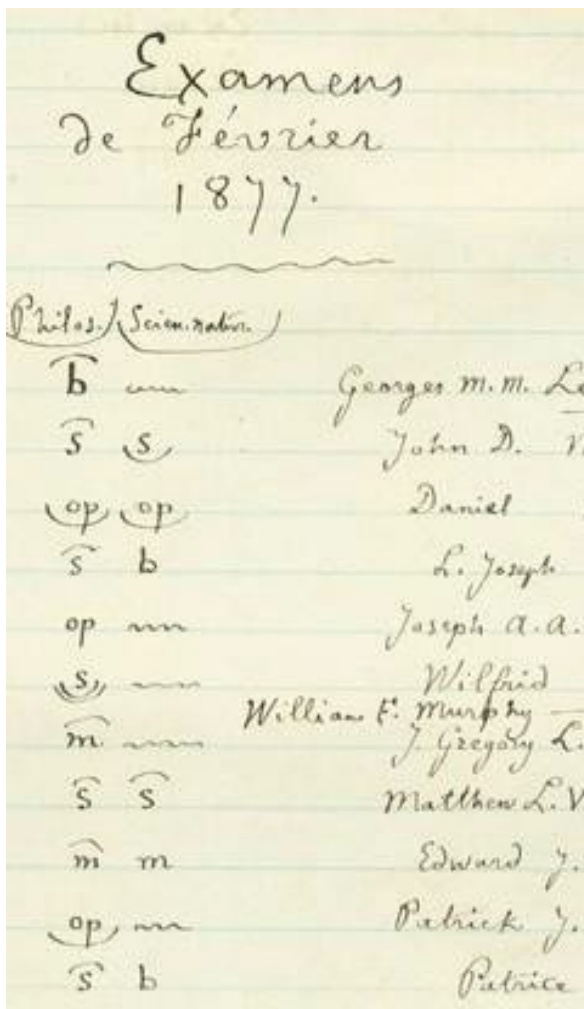 Examens
de Février
1877.
Philos. Scien. natur.
b Georges M. M. Le
s s John D.
op op Daniel
s b L. Joseph
op Joseph A. A.
s Wilfrid
William F. Murphy
m J. Gregory L.
s s Matthew L. V
m m Edward J.
op Patrick J.
s b Patrice